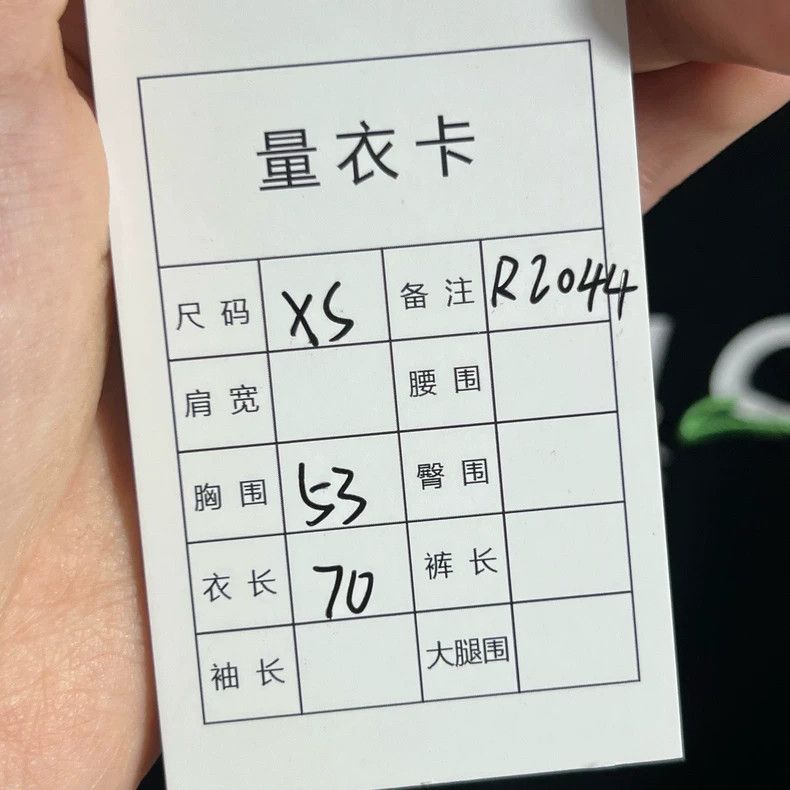 量衣卡
尺码 XS 备注 R2044
肩宽 腰围
胸围 53 臀围
衣长 70 裤长
袖长 大腿围